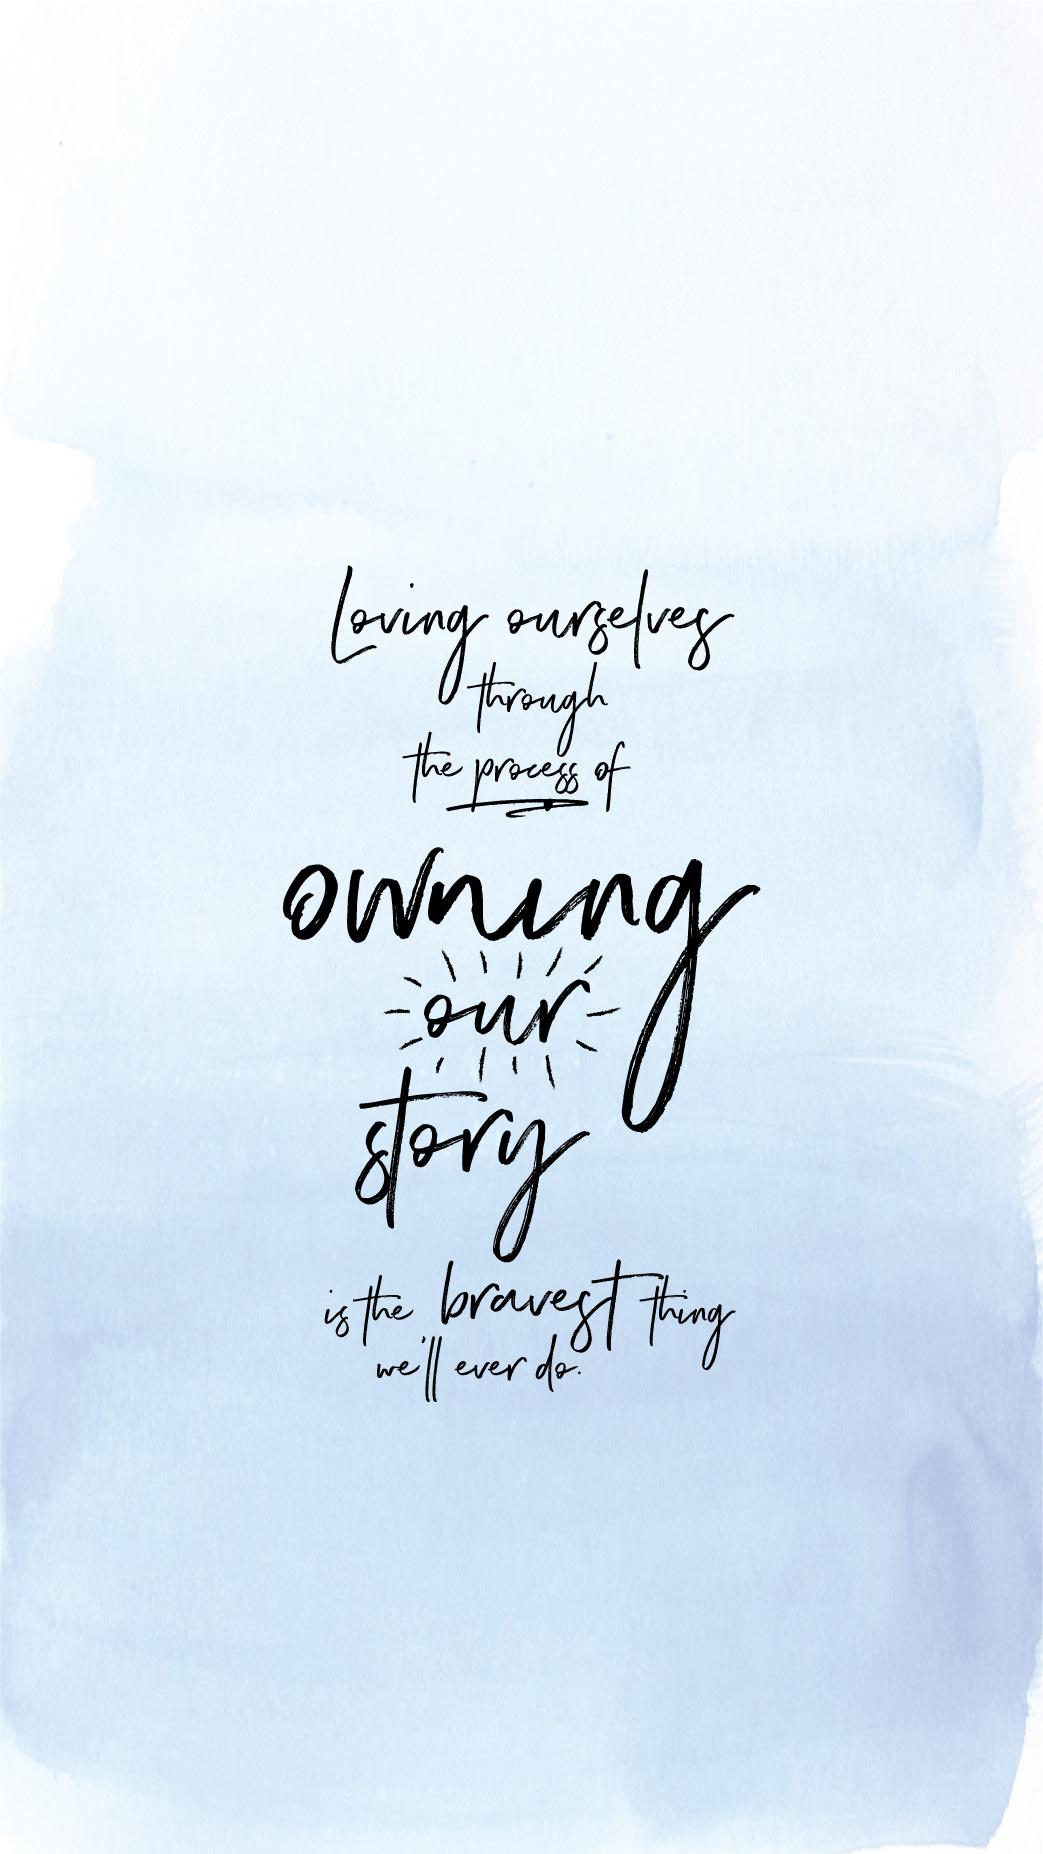 Loving ourselves
through
the process of
owning
our
story
is the bravest thing
we'll ever do.